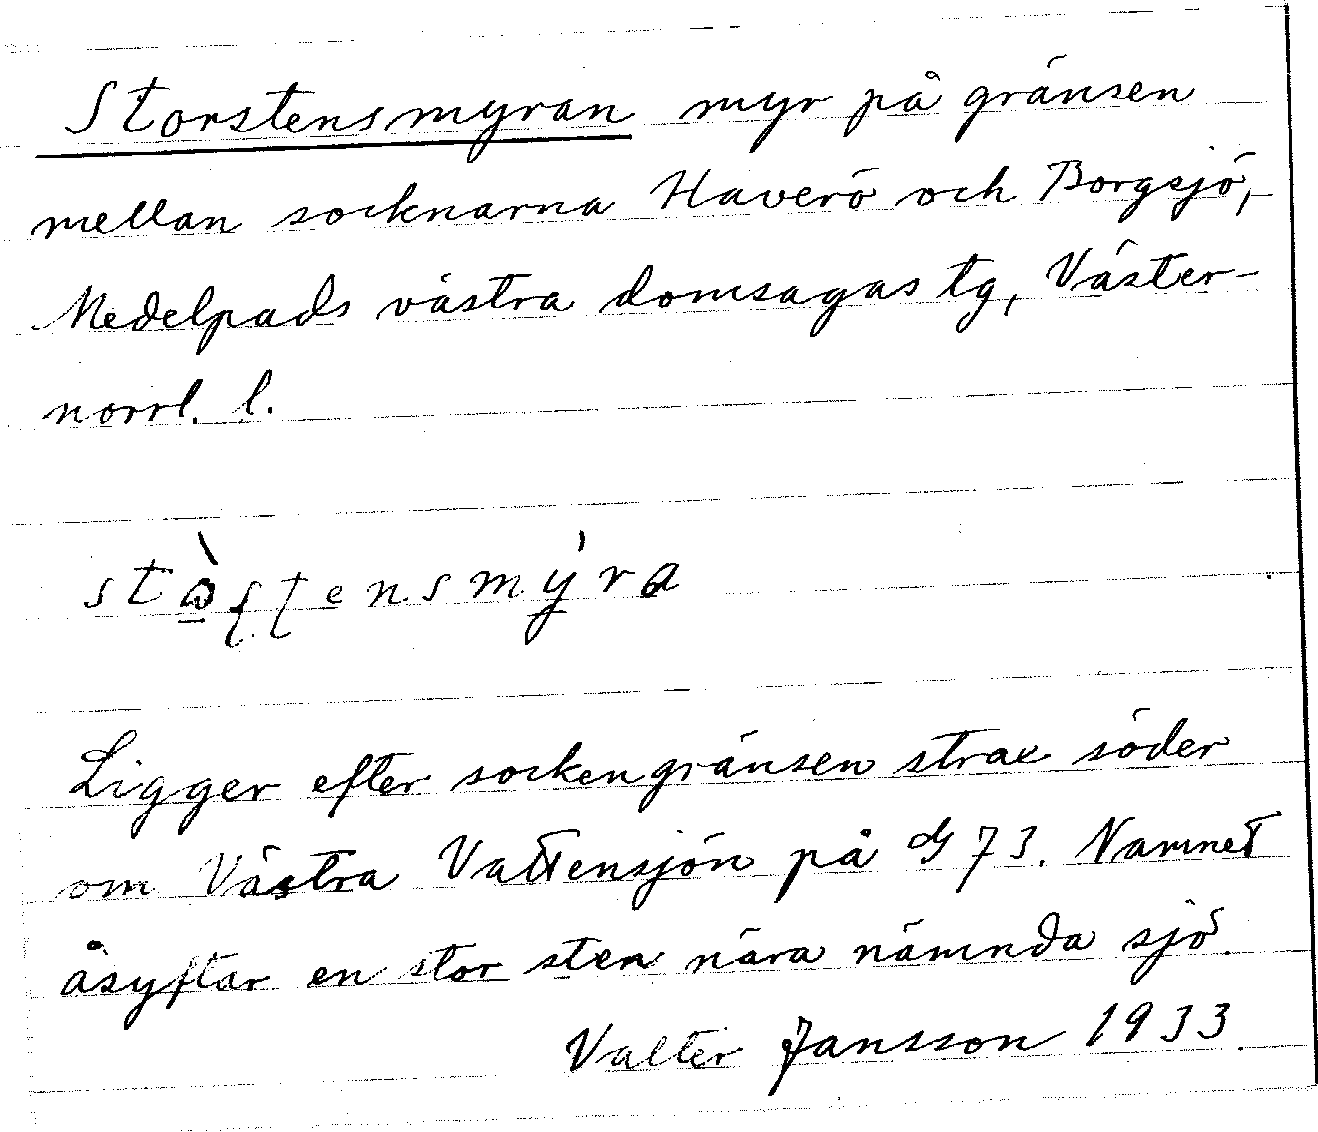 Storstensmyran myr på gränsen
mellan socknarna Haverö och Borgsjö,
Medelpads västra domsagas tg, Väster-
norrl. l.
Ligger efter sockengränsen strax söder
om Västra Vattensjön på G 73. Namnet
åsyftar en stor sten nära nämnda sjö.
Valter Jansson 1933.